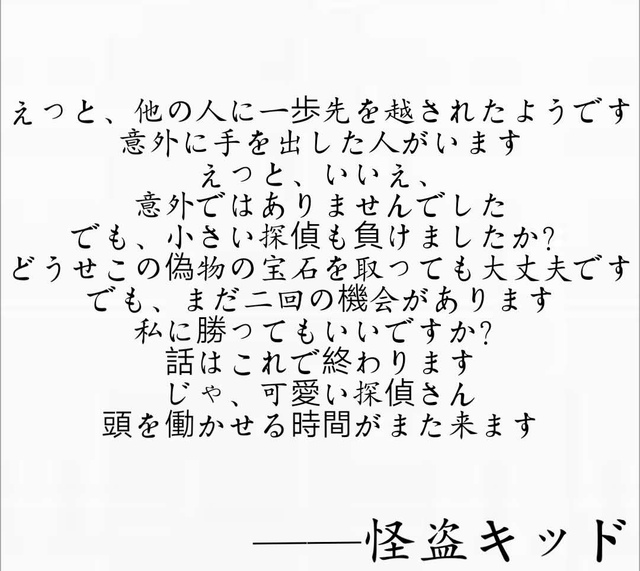 えっと、他の人に一歩先を越されたようです
意外に手を出した人がいます
えっと、いいえ、
意外ではありませんでした
でも、小さい探偵も負けましたか?
どうせこの偽物の宝石を取っても大丈夫です
でも、まだ二回の機会があります
私に勝ってもいいですか?
話はこれで終わります
じゃ、可愛い探偵さん
頭を働かせる時間がまた来ます
——怪盗キッド